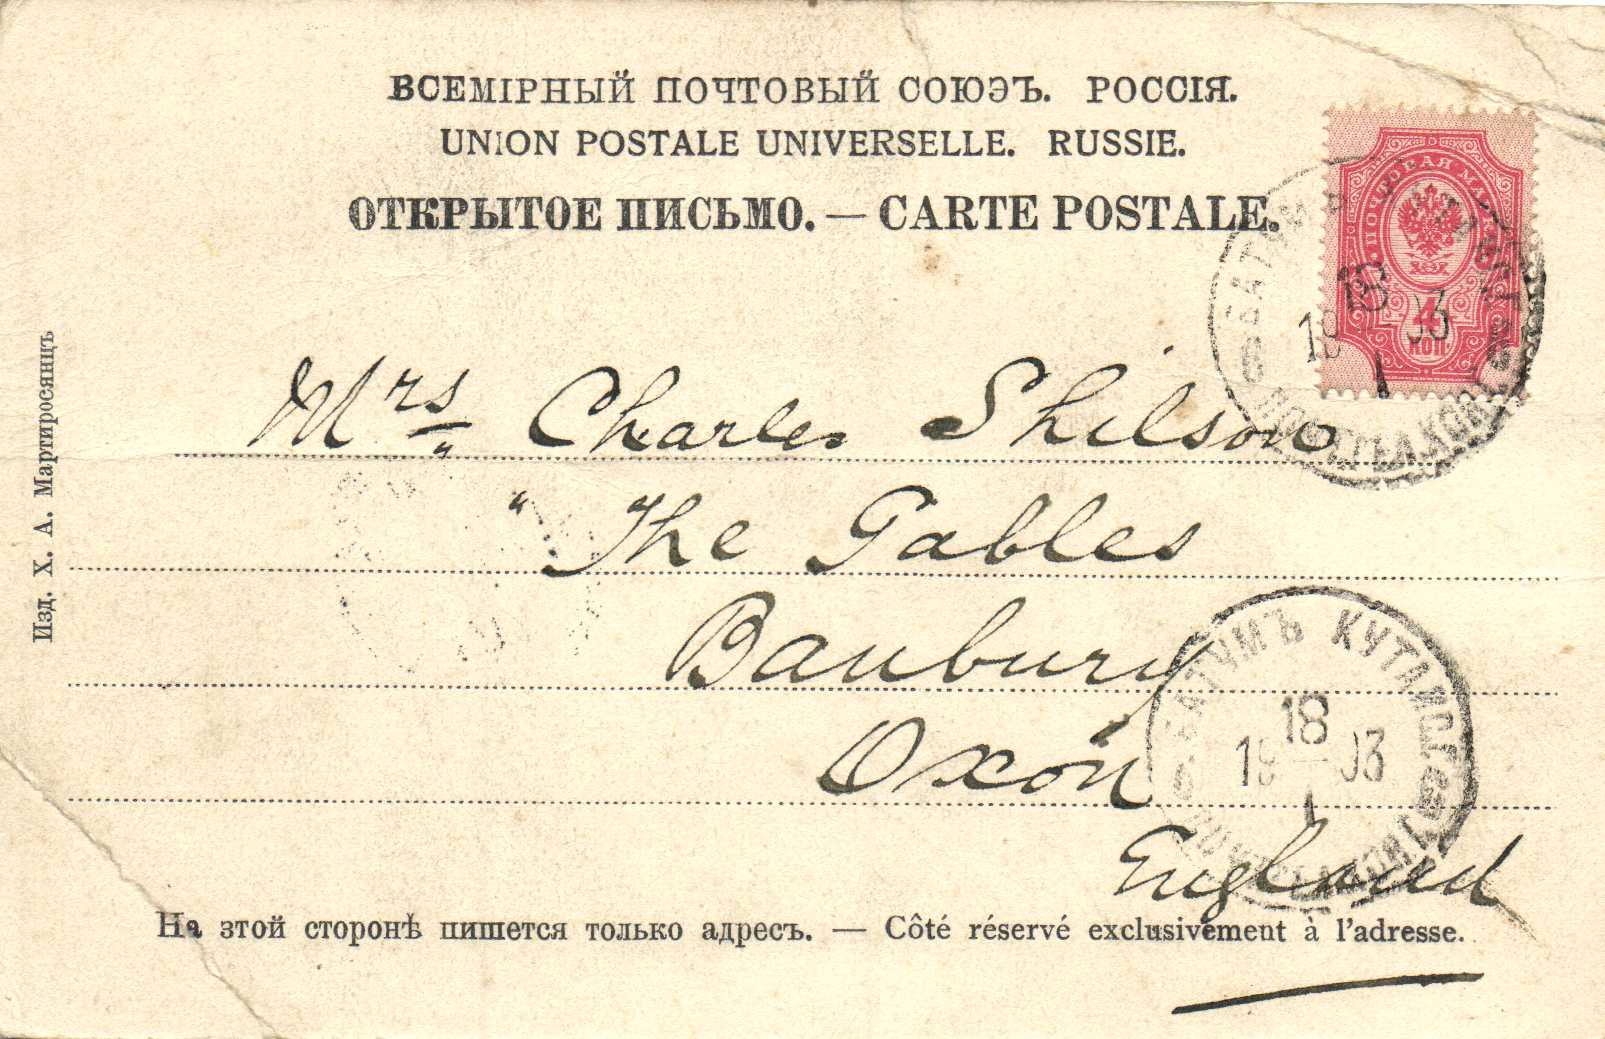 ВСЕМІРНЫЙ ПОЧТОВЫЙ СОЮЭЪ. РОССІЯ.
UNION POSTALE UNIVERSELLE. RUSSIE.
ОТКРЫТОЕ ПИСЬМО. — CARTE POSTALE.
ПОЧТОВАЯ
4
КОП
БАТУМЪ
18
19 03
1
Изд. Х. А. Мартиросянцъ
Mrs Charles Shilson
"The Gables
Banbury
Oxon
England
БАТУМЪ КУТАИС.Г.
18
19 03
1
На зтой сторонѣ пишется только адресъ. — Côté réservé exclusivement à l'adresse.